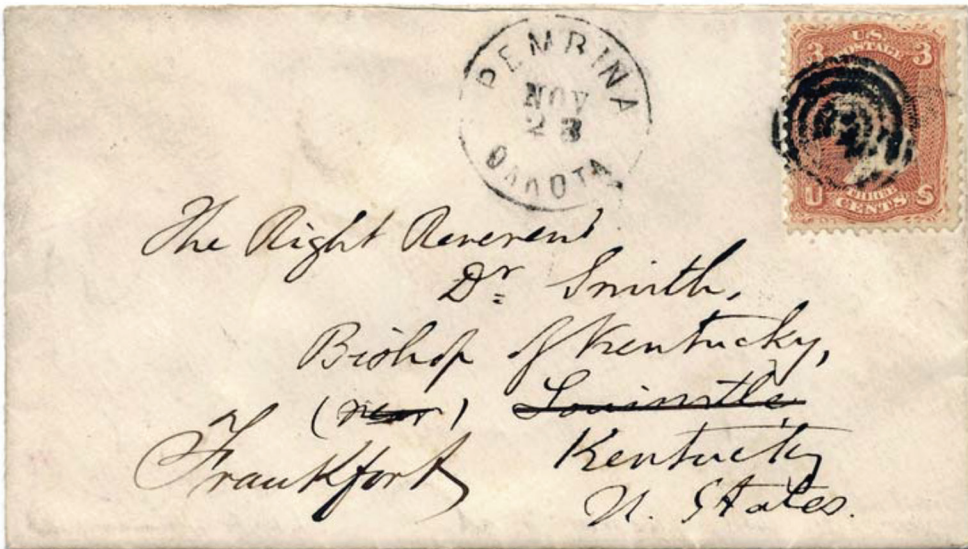 PEMBINA
NOV
23
DAKOTA
3 U.S. POSTAGE 3
THREE
U CENTS S
The Right Reverend
Dr Smith,
Bishop of Kentucky,
(near) Louisville
Frankfort Kentucky
U. States.